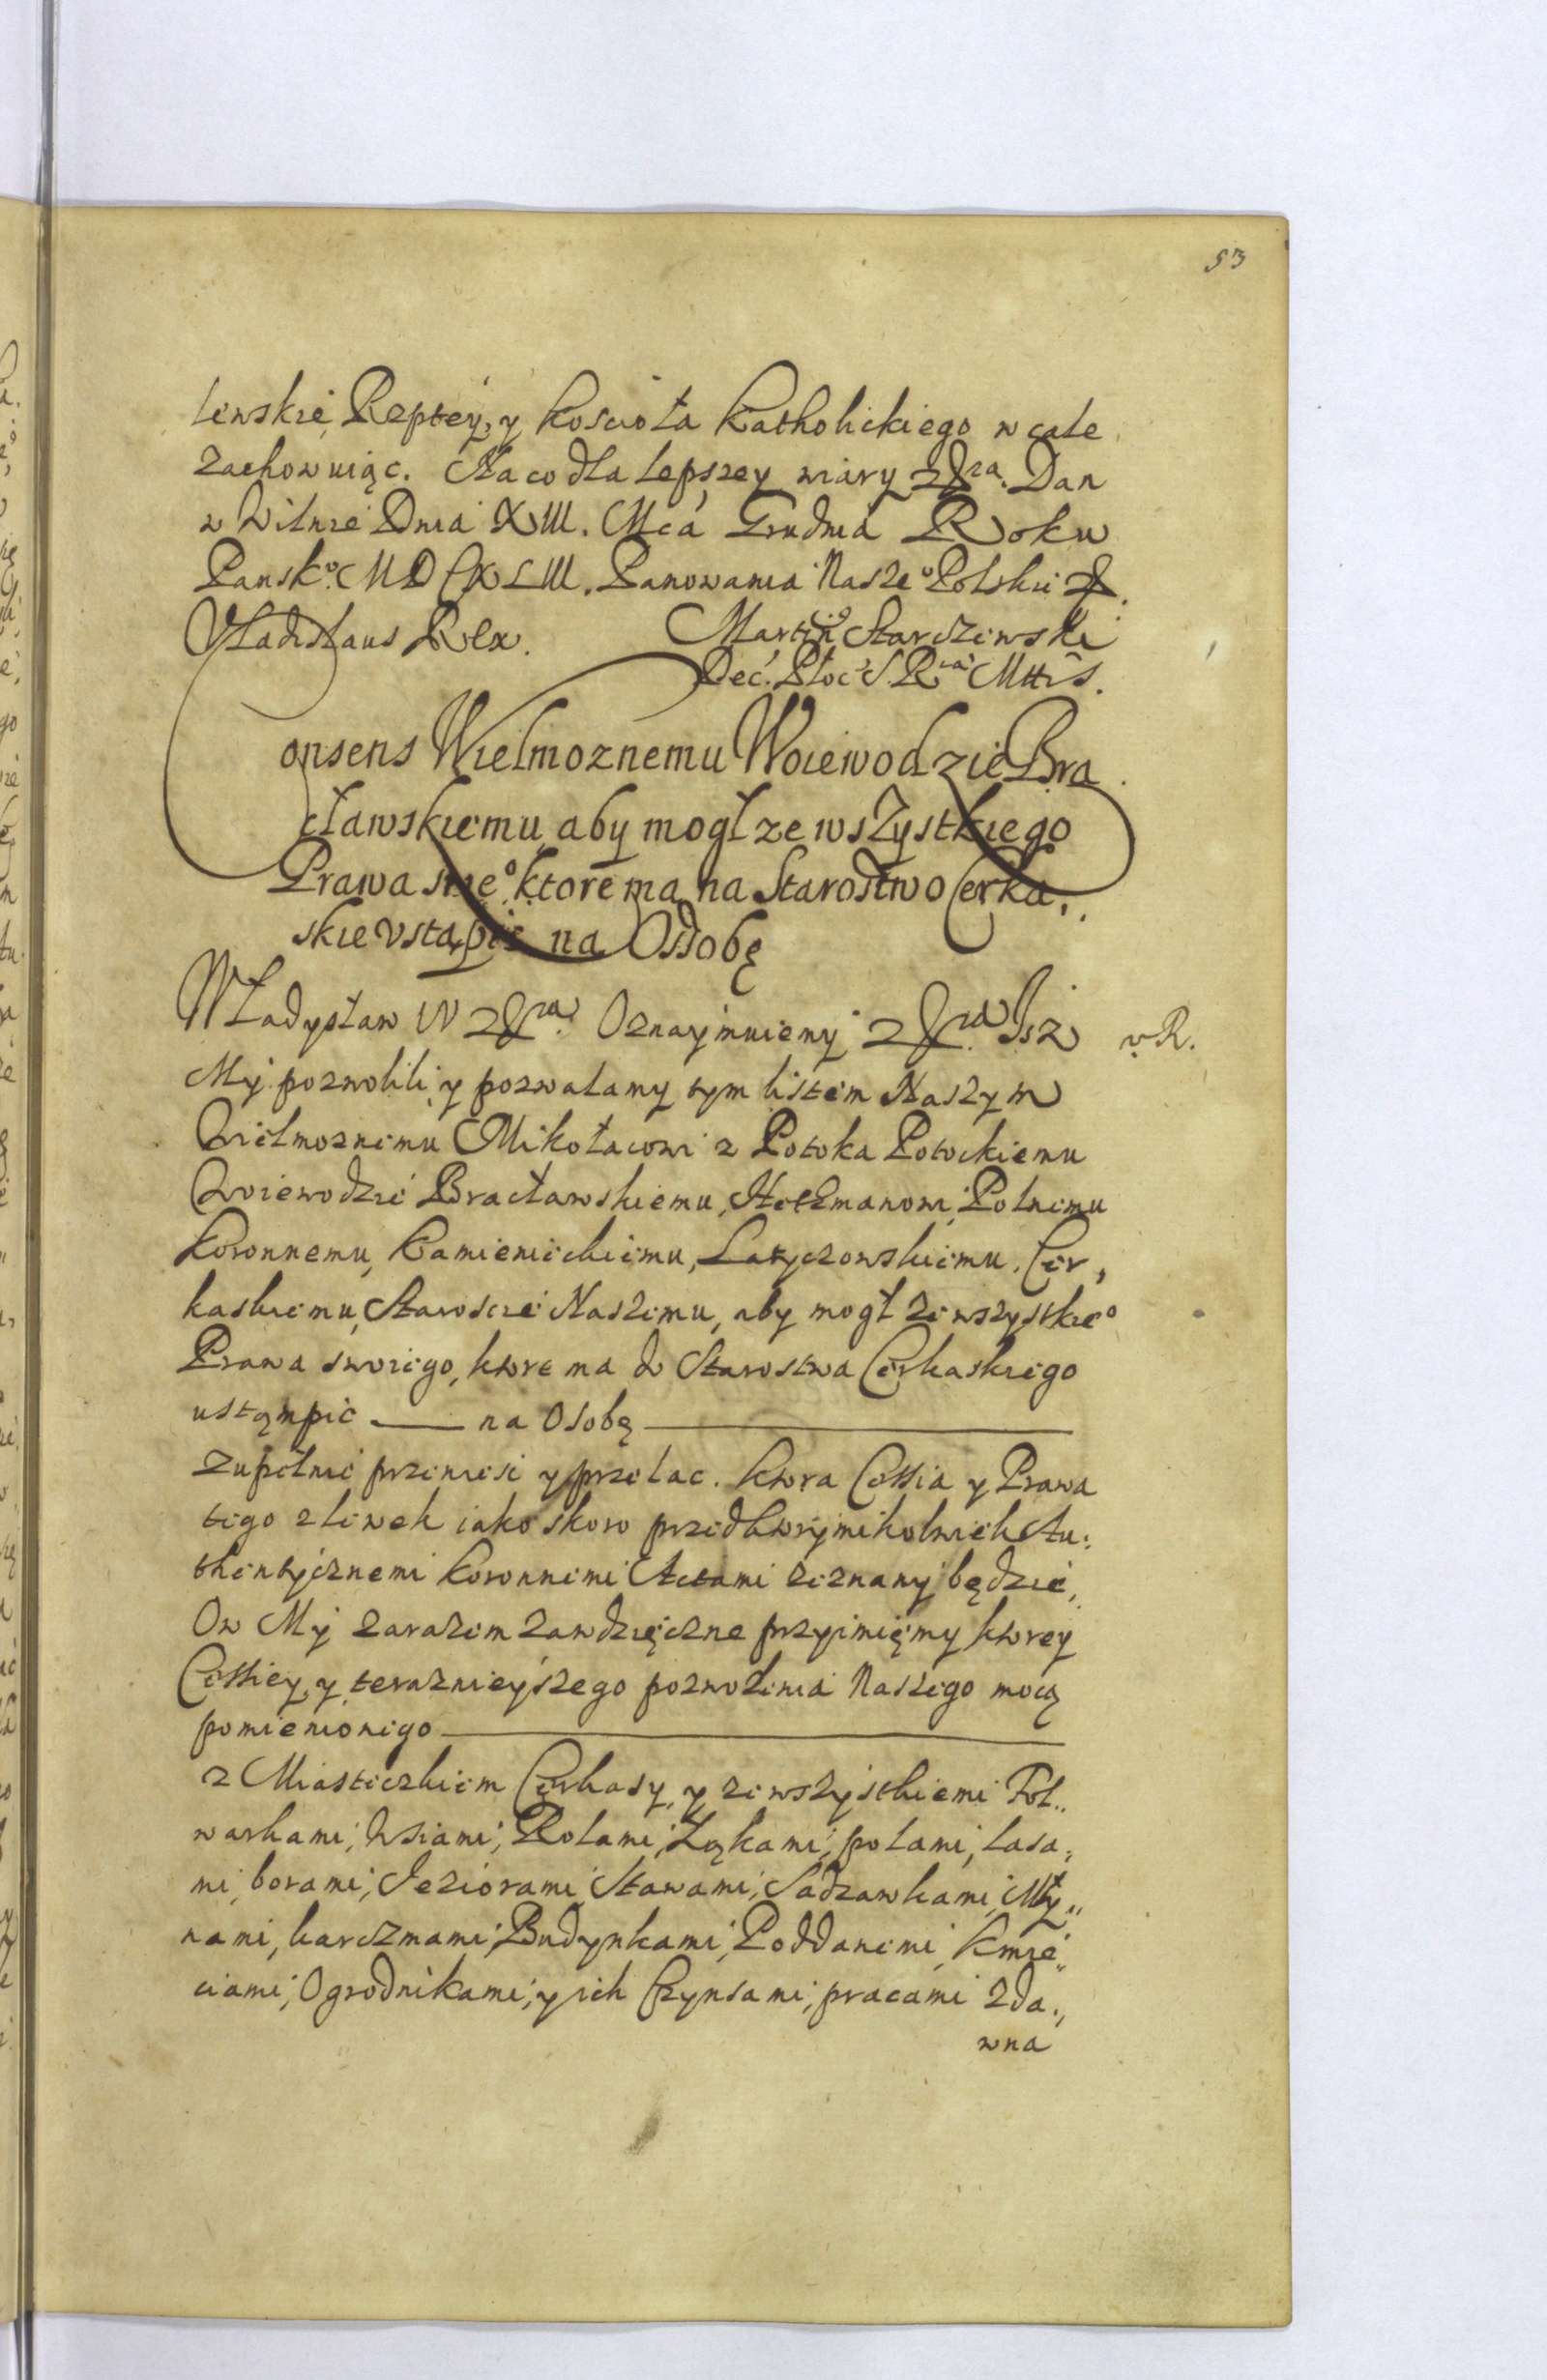 53
lewskie Rzptey, y Koscioła Katholickiego w cale
zachowuiąc. Na co dla lepszey wiary &ra. Dan
w Wilnie Dnia XIII. Mca Grudnia Roku
Pansko. MDCXLIII. Panowania Nasze° Polskie &.
Vladislaus Rex. Martin9 Starczewski
Dec. Płoc. S. Rae Mttis.
Consens Wielmoznemu Woiewodzie Bra
cławskiemu aby mogł ze wszystkiego
Prawa swe° ktore ma na Starostwo Cerka,,
skie vstąpic na Ossobę
Władysław IV &ra. Oznaymuiemy &ra Isz v. R.
My pozwolili y pozwalamy tym listem Naszym
Wielmoznemu Mikołaiowi z Potoka Potockiemu
Woiewodzie Bracławskiemu, Hetmanowi Polnemu
Koronnemu, Kamienieckiemu, Latyczowskiemu. Cer,
kaskiemu Staroscie Naszemu, aby mogł ze wszystkie°
Prawa swoiego, ktore ma do Starostwa Cerkaskiego
ustąmpic —— na Osobę ——
zupełnie przeniesc y przelac. Ktora Cessia y Prawa
tego zlewek iako skoro przed ktorymikolwiek Au:
thentycznemi Koronnemi Actami zeznany będzie,
On My zarazem za wdzięczne przyimięmy ktorey
Cessiey, y teraznieyszego pozwolenia Naszego mocą
pomienionego ——
z Miasteczkiem Cerkasy, y ze wszystkiemi Fol,,
warkami, Wsiami, Rolami, Łąkami, polami, lasa,
mi, borami, Jeziorami Stawami, Sadzawkami, Mły,,
nami, karczmami, Budynkami, Poddanemi, Kmie,,
ciami, Ogrodnikami, y ich Czynsami, pracami zda,,
wna